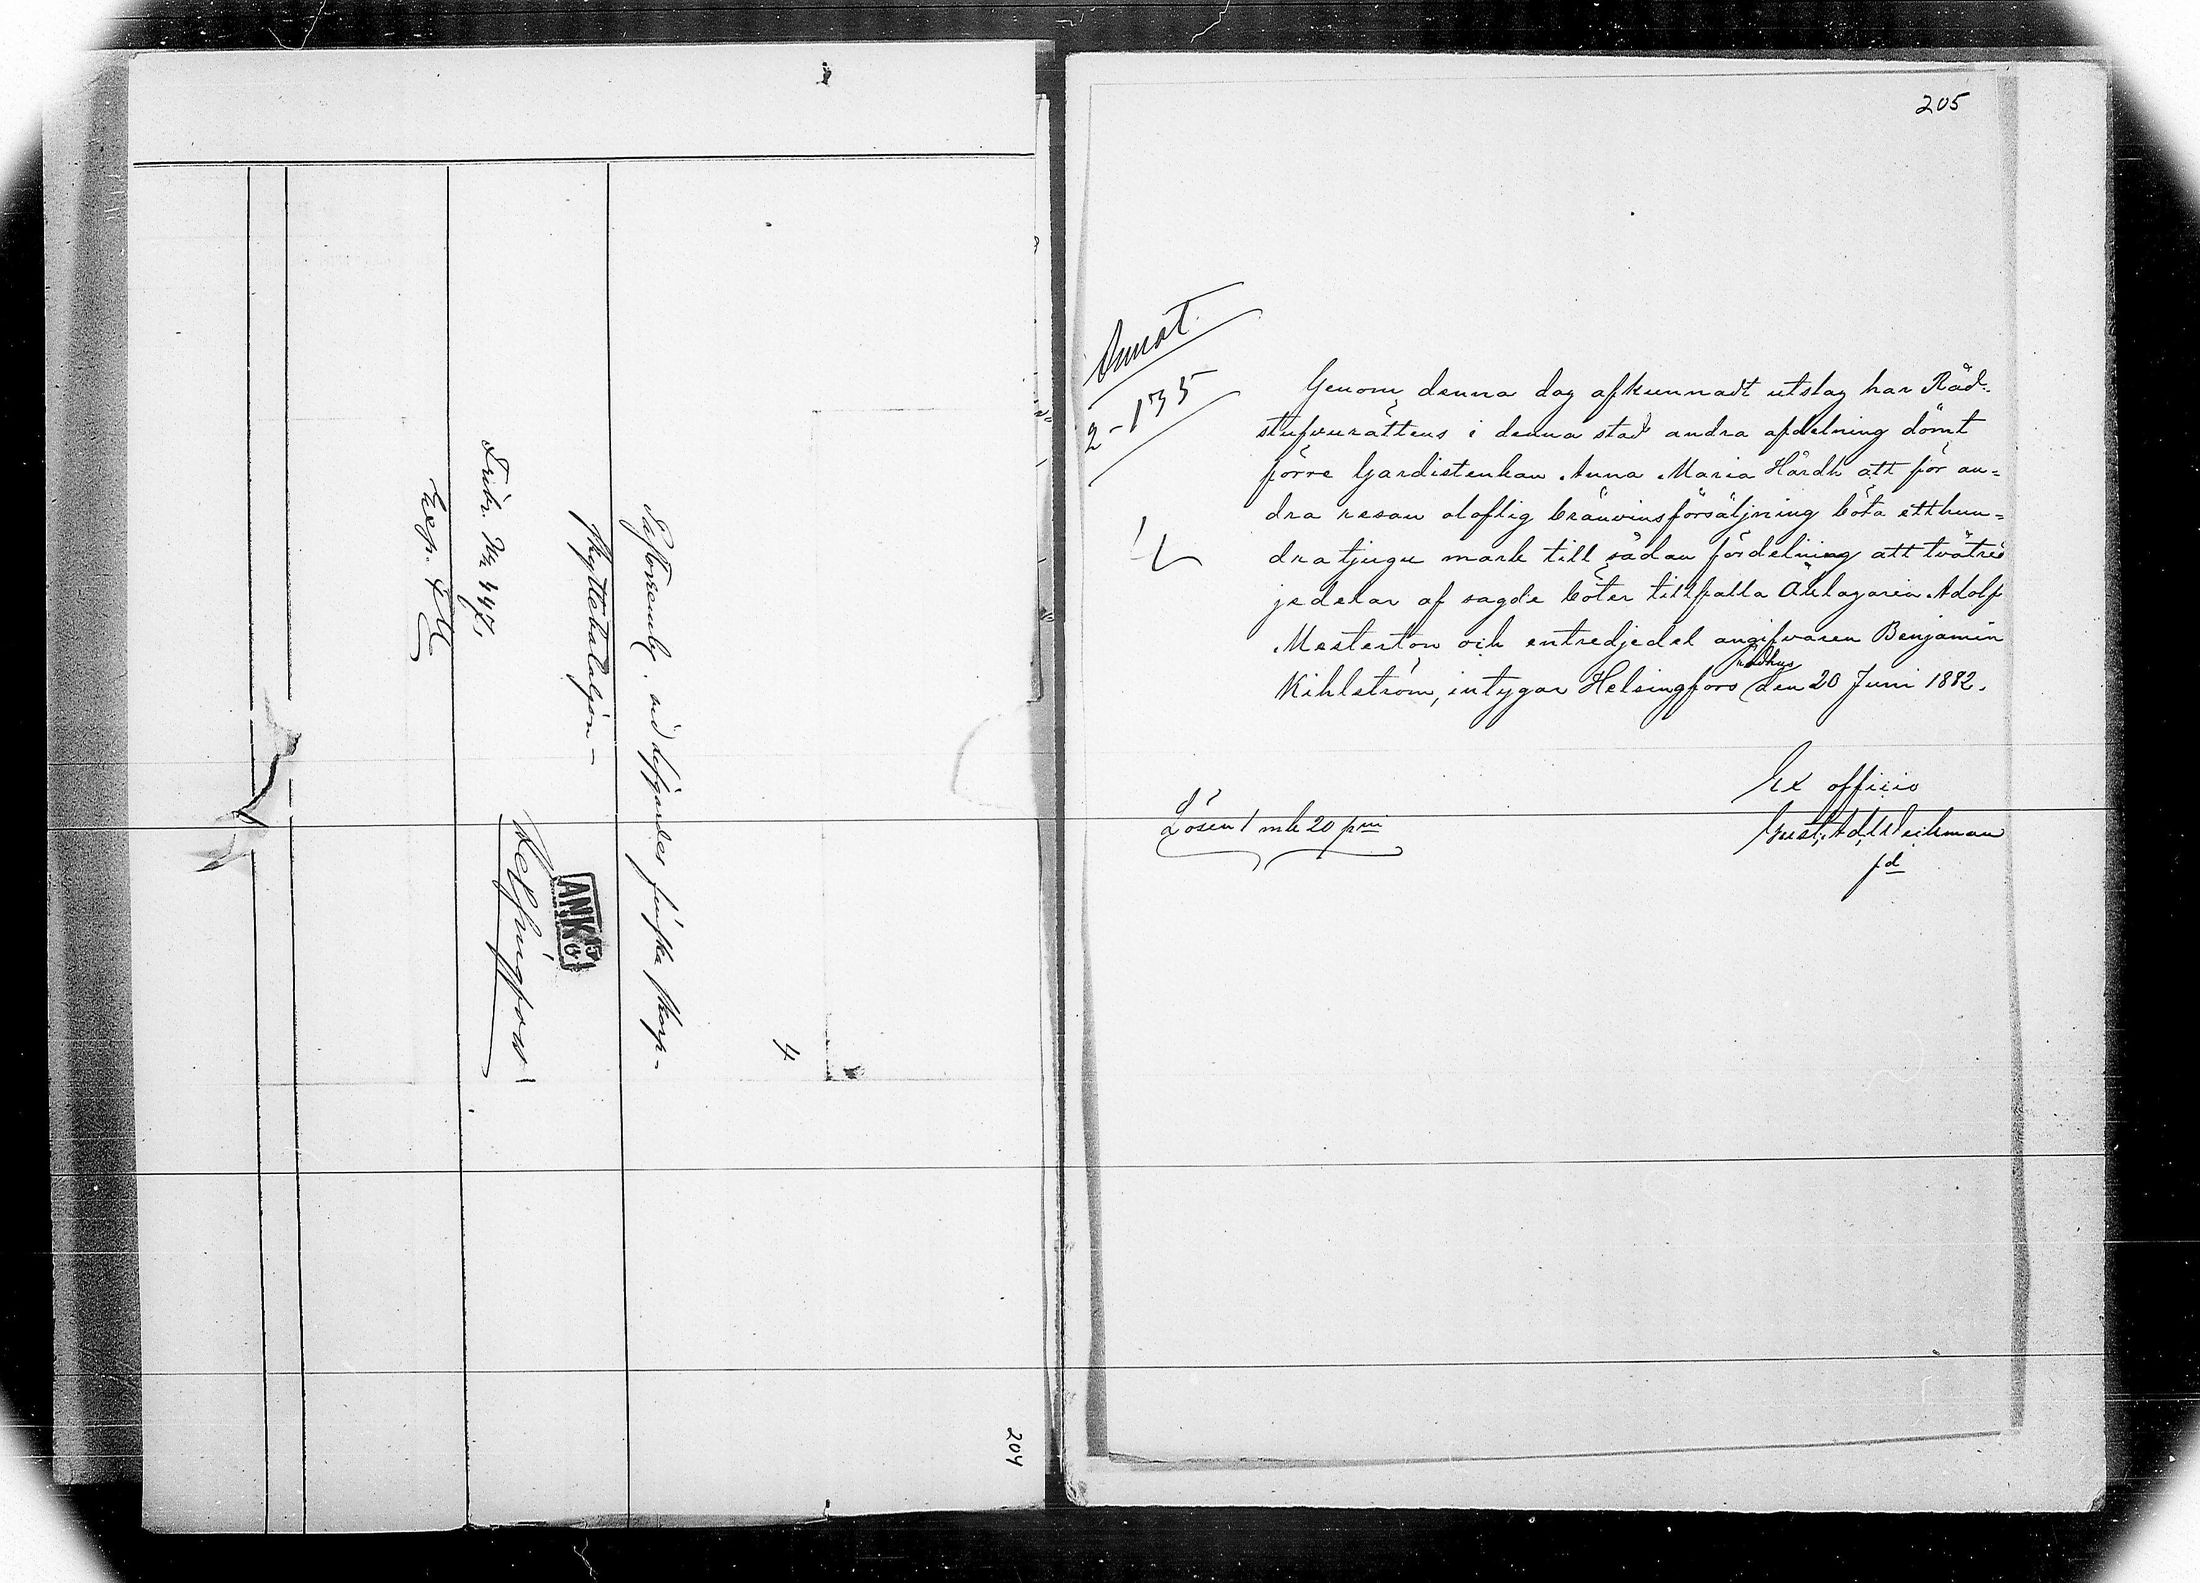 Pastorsemb. vid lifgardes finska skarp-
skyttebataljon -
Helsingfors
Fribr. No 447,
Exp.
ANK
4
204
205
Annot.
2-135
Genom denna dag afkunnadt utslag har Råd-
stufvurättens i denna stad andra afdelning dömt
förre Gardistenkan Anna Maria Hårdh att för an=
dra resan oloflig bränvinsförsäljning böta etthun=
dra tjugu mark till sådan fördelning att tvåtred
jedelar af sagde böter tillfalla Åklagaren Adolf
Mesterton och entredjedel angifvaren Benjamin
Kihlström, intygar Helsingfors rådhus den 20 Juni 1882.
Ex officio
Gust. Ad. Weikman
fd
Lösen 1 mk 20 pni